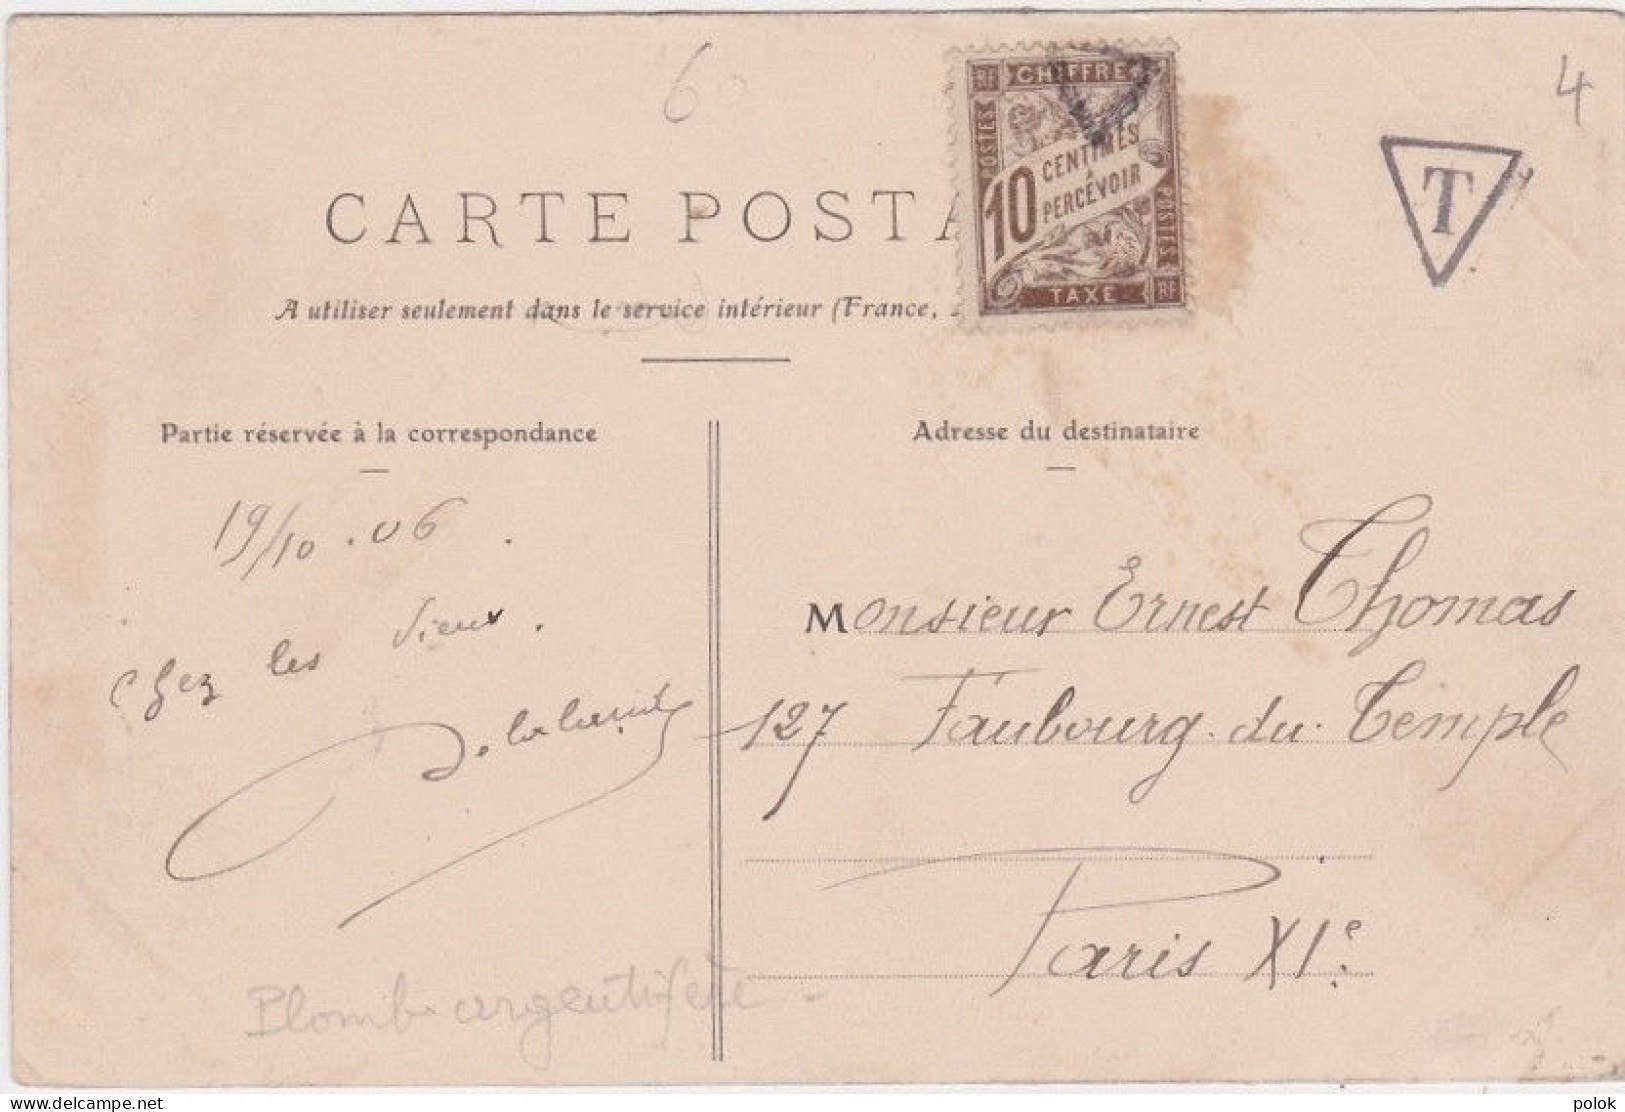 60
4
CARTE POSTA
RF CHIFFRE
POSTES
10 CENTIMES
À
PERCEVOIR
POSTES
TAXE RF
T
A utiliser seulement dans le service intérieur (France,
Partie réservée à la correspondance
Adresse du destinataire
19/10.06.
chez les vieux.
Monsieur Ernest Thomas
127 Faubourg.du.Temple
Paris XIe.
Plomb argentifère
delcampe.net
polok